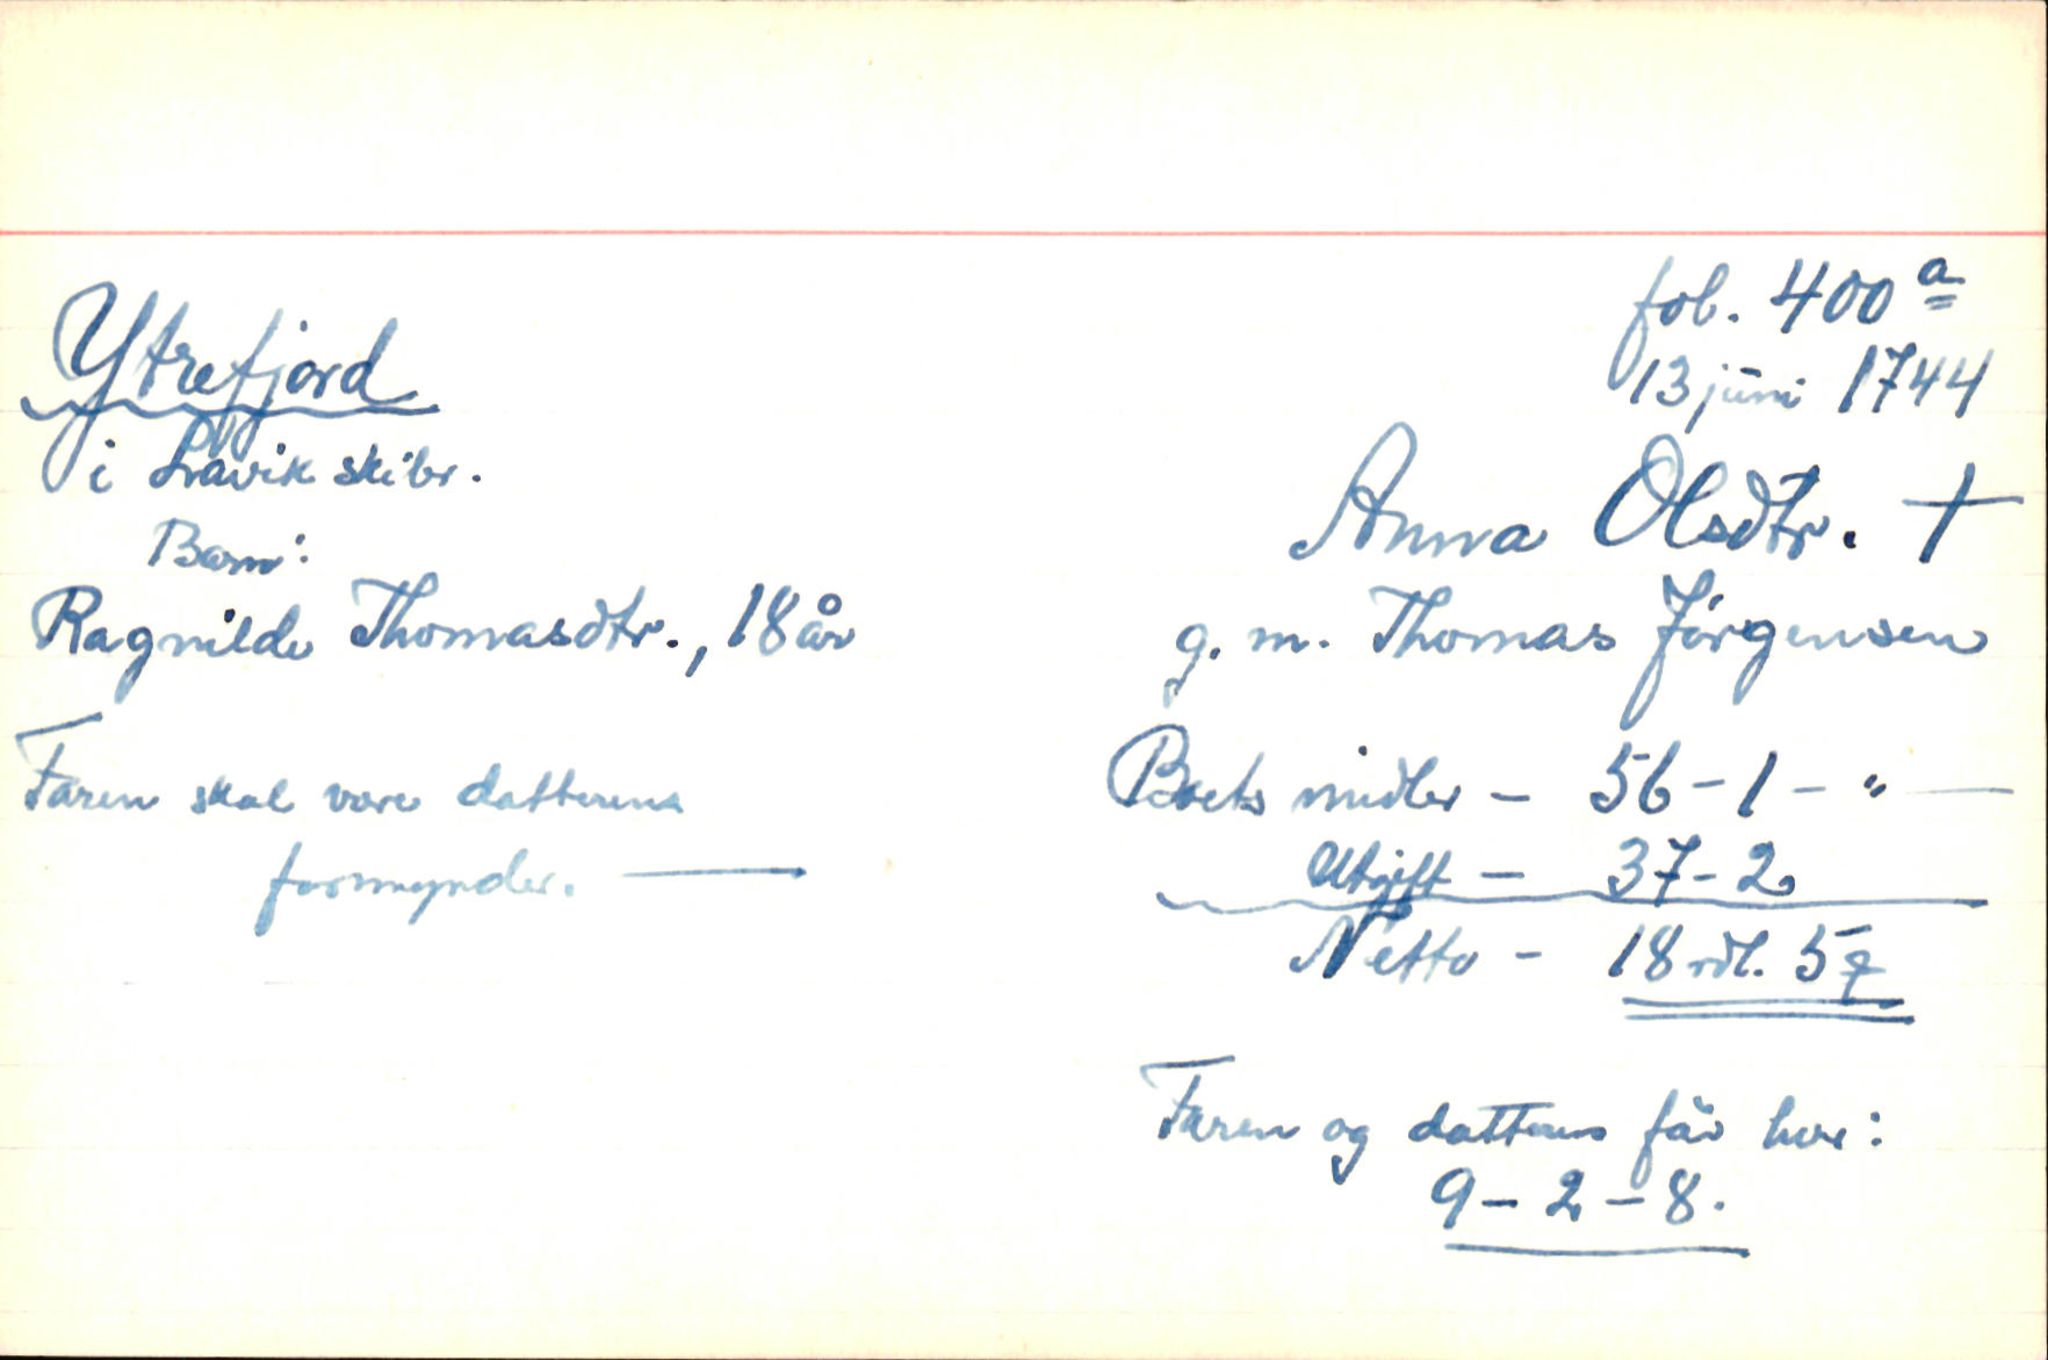 fol. 400 a
13 juni 1744
Ytrefjord
i Lavik skibr.
Barn:
Ragnilde Thomasdtr., 18 år
Faren skal være datterens
formynder. —
Anna Olsdtr. †
g. m. Thomas Jörgensen
Boets midler - 56 - 1 - " —
Utgift - 37 - 2
Netto - 18 rdl. 5
Faren og datteren får hver:
9 - 2 - 8.